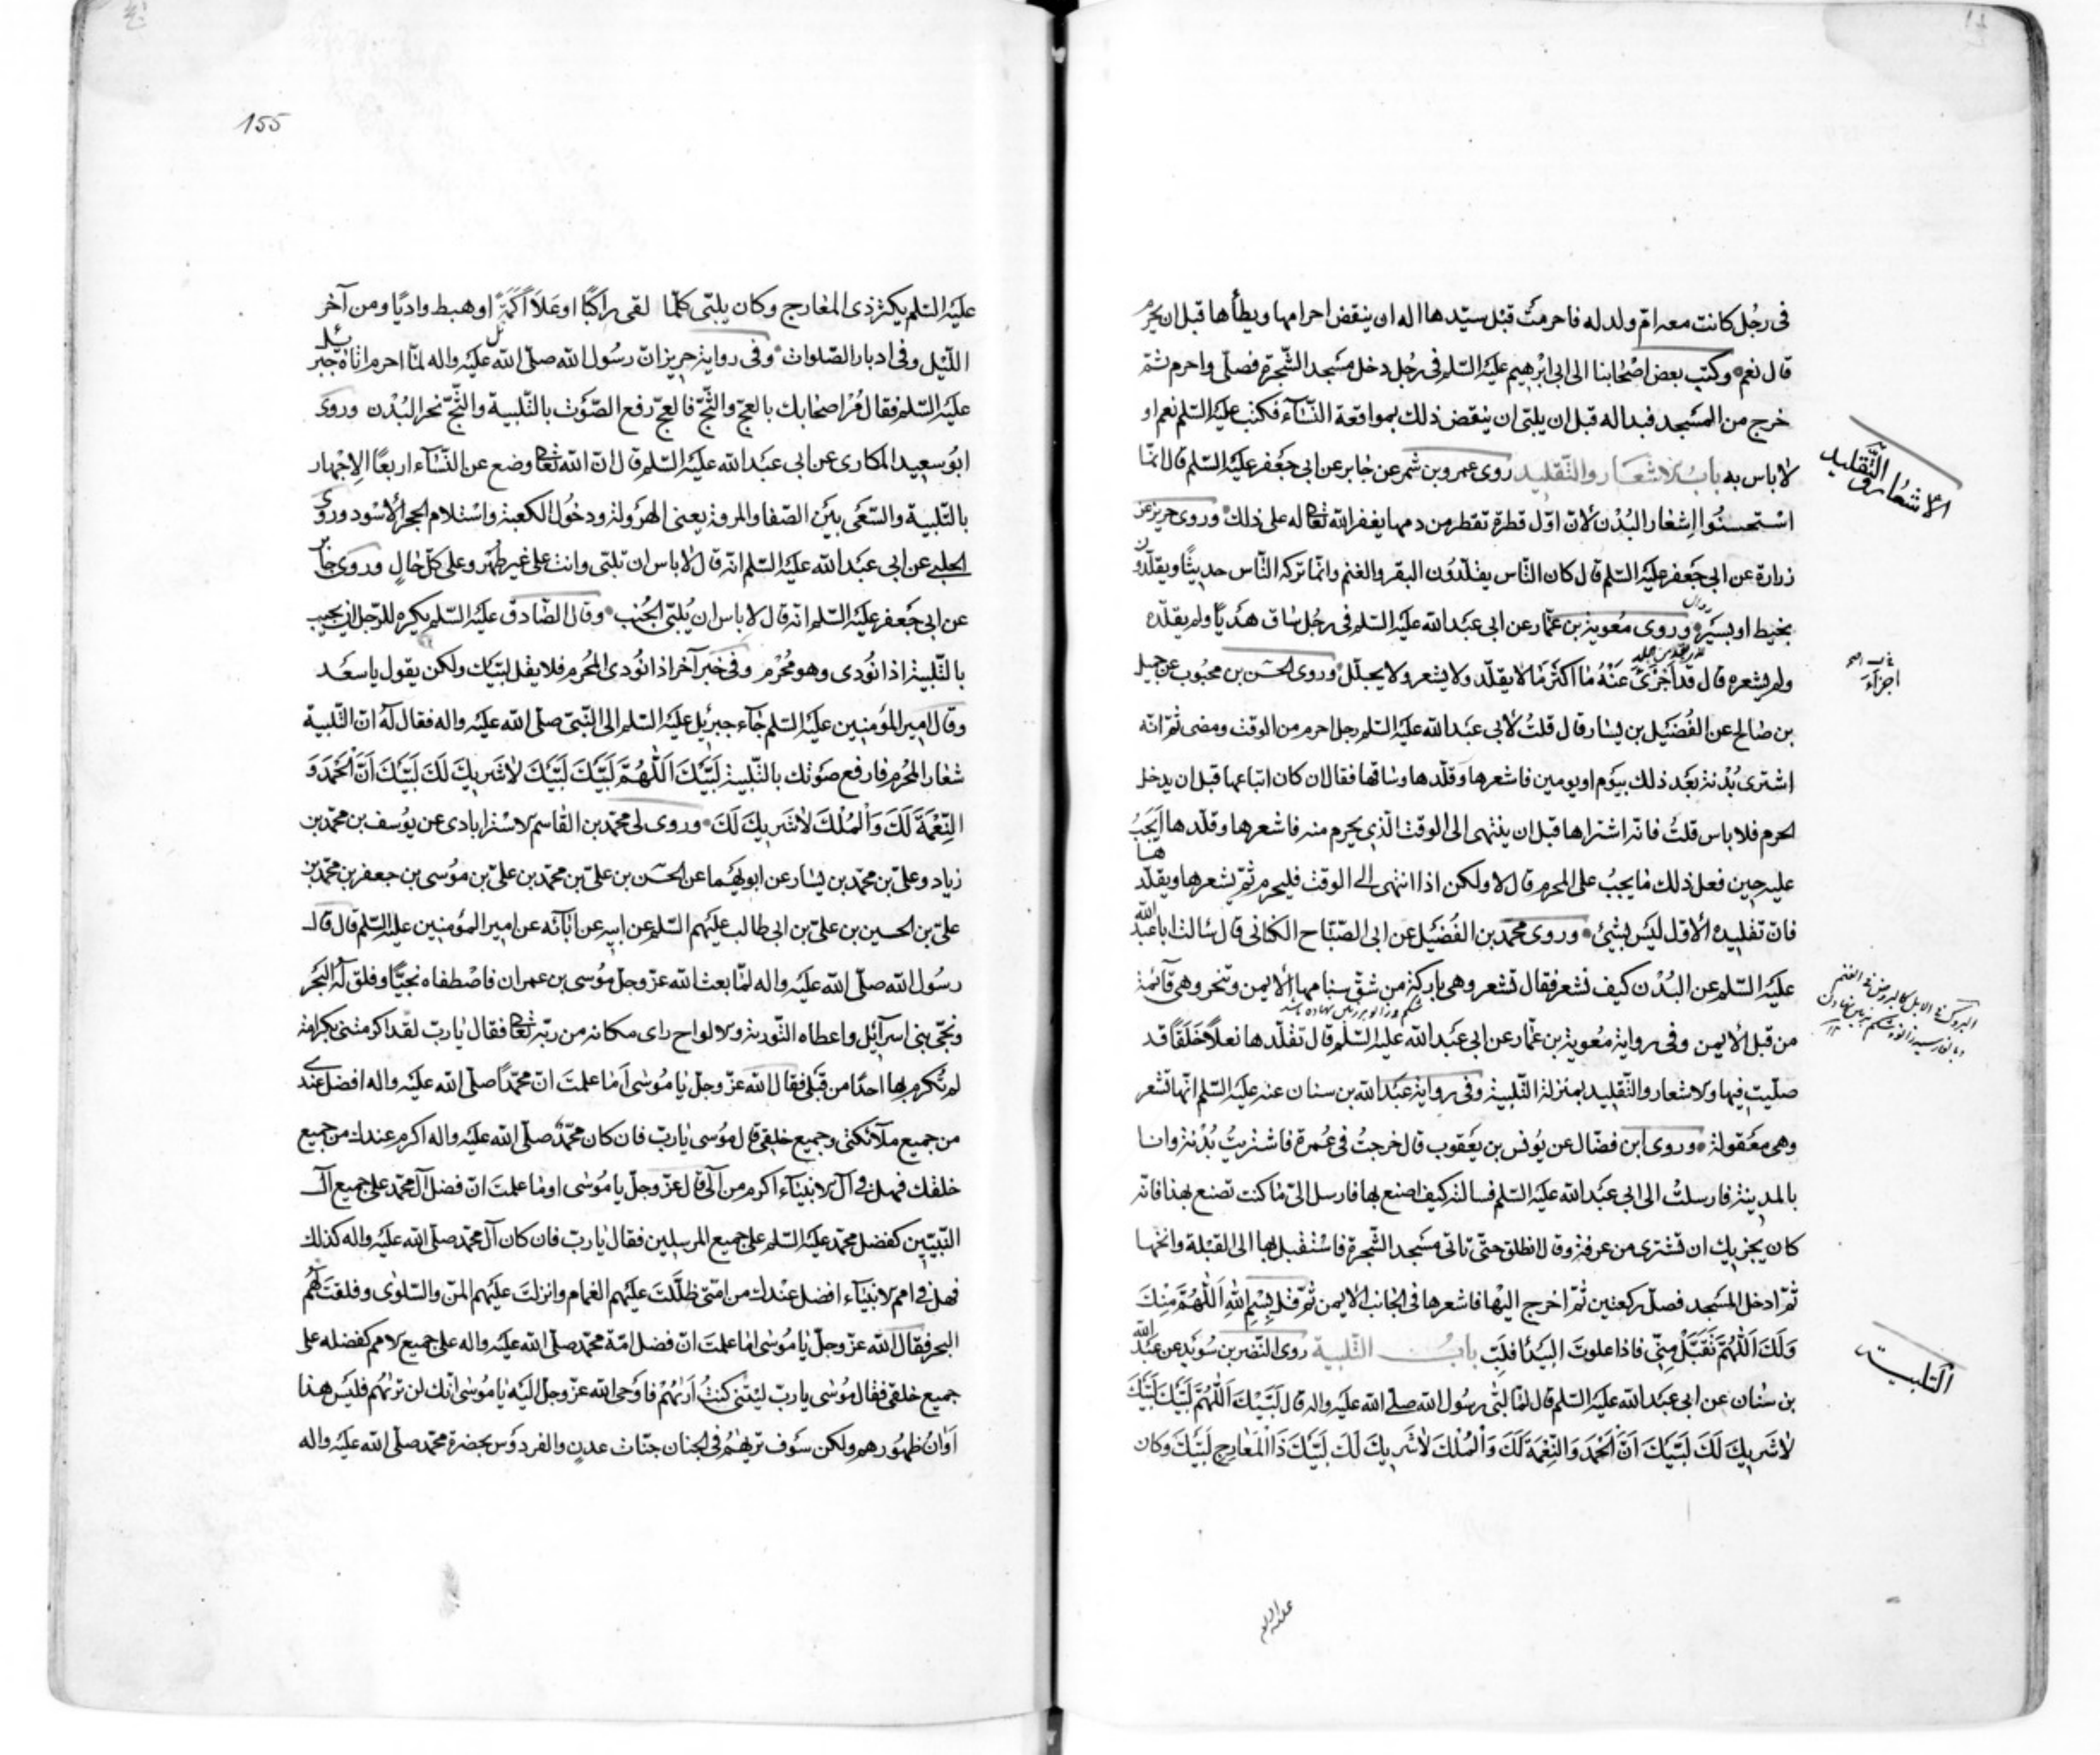 فى رجُل كانت معه امّ ولد له فاحرمتْ قبل سيّدها اله ان ينقض احرامها ويطأها قبل ان يحرم
قال نعم وكتب بعض اصحابنا الى ابى ابرهيم عليه السّلم فى رجُل دخل مسجد الشّجرة فصلّى واحرم ثمّ
خرج من المسجد فبدا له قبل ان يلبّى ان ينقض ذلك بمواقعة النّسآء فكتب عليه السّلم نعم او
لا باس به باب الاشعار والتّقليد روى عمرو بن شمر عن جابر عن ابى جعفر عليه السّلم قال انّما
الاشعار والتّقليد
استحسنُوا اشعار البُدْن لانّ اوّل قطرة تقطر من دمها يغفر الله تعالى له على ذلك وروى حريز عن
زرارة عن ابى جعفر عليه السّلم قال كان النّاس يقلّدُون البقر والغنم وانّما تركه النّاس حديثًا ويقلّدون
بخيط او بسَيْر وروى معوية بن عمّار عن ابى عبد الله عليه السّلم فى رجُل ساق هديًا ولم يقلّده
ولم يشعره قال قد اَجزىٰ عَنْهُ ما اكثر ما لا يقلّد ولا يشعر ولا يجلّل وروى الحسن بن محبُوب عن جميل
اجزآء
بن صالح عن الفُضَيل بن يسار قال قلتُ لابى عبد الله عليه السّلم رجل احرم من الوقت ومضى ثمّ انّه
اشترى بُدْنة بعد ذلك بيوم او يومين فاشعرها وقلّدها وساقها فقال ان كان ابتاعها قبل ان يدخل
الحرم فلا باس قلتُ فانّه اشتراها قبل ان ينتهى الى الوقت الّذى يحرم منه فاشعرها وقلّدها ايجبُ
عليه حين فعل ذلك ما يجبُ على المحرم قال لا ولكن اذا انتهى الى الوقت فليحرم ثمّ يشعرها ويقلّدها
فانّ تقليده الاوّل ليس بشئ وروى محمد بن الفُضَيل عن ابى الصّبّاح الكنانى قال سالت ابا عبد الله
عليه السّلم عن البُدْن كيف تشعر فقال تشعر وهى باركة من شقّ سنامها الايمن وتنحر وهى قآئمة
من قبل الايمن وفى رواية مُعوية بن عمّار عن ابى عبد الله عليه السّلم قال تقلّدها نعلًا خَلَقًا قد
صلّيت فيها والاشعار والتّقليد بمنزلة التّلبية وفى رواية عبد الله بن سنان عنه عليه السّلم انّها تشعر
وهى معقولة وروى ابن فضّال عن يُونس بن يعقوب قال خرجتُ فى عُمرة فاشتريتُ بُدْنة وانا
بالمدينة فارسلتُ الى ابى عبد الله عليه السّلم فسالته كيف اصنع بها فارسل الىّ ما كنت تصنع بهذا فانّه
كان يجزيك ان تشترى من عرفة وقال انطلق حتّى تاتى مسجد الشّجرة فاستقبل بها الى القبلة وانخها
ثمّ ادخل المسجد فصلّ ركعتين ثمّ اخرج اليها فاشعرها فى الجانب الايمن ثمّ قل بِسْمِ اللهِ اَللّٰهُمَّ مِنْكَ
وَلَكَ اَللّٰهُمَّ تَقَبَّلْ مِنّى فاذا علوت البيدآ فلبّ باب التّلبية روى النّضر بن سُوَيد عن عبد الله
التلبية
بن سنان عن ابى عبد الله عليه السّلم قال لمّا لبّى رسُول الله صلّى الله عليه واله قال لَبَّيْكَ اَللّٰهُمَّ لَبَّيْكَ لَبَّيْكَ
لا شَريكَ لَكَ لَبَّيْكَ اَنَّ الْحَمْدَ وَالنِّعْمَةَ لَكَ وَالْمُلْكَ لا شَريكَ لَكَ لَبَّيْكَ ذَا الْمَعارِجِ لَبَّيْكَ وكان
عليه السلم
155
عليه السّلم يكثر ذى المعارج وكان يلبّى كلّما لقى راكبًا او عَلَا اَكَمَةً او هبط واديًا ومن آخر
اللّيل وفى ادبار الصّلوات وفى رواية حريز انّ رسُول الله صلّى الله عليه واله لمّا احرم اتاه جبرئيل
عليه السّلم فقال مُرْ اصحابك بالعجّ والثّجّ فالعجّ رفع الصّوت بالتّلبية والثّجّ نحر البُدْن وروى
ابُو سعيد المكارى عن ابى عبد الله عليه السّلم قال انّ الله تعالى وضع عن النّسآء اربعًا الاِجْهار
بالتّلبية والسّعى بين الصّفا والمروة يعنى الهرولة ودخُول الكعبة واستلام الحجر الاسود وروى
الحلبى عن ابى عبد الله عليه السّلم انّه قال لا باس ان تلبّى وانت على غير طهر وعلى كلّ حالٍ وروى جابر
عن ابى جعفر عليه السّلم انّه قال لا باس ان يُلبّى الجُنب وقال الصّادق عليه السّلم يكره للرّجل ان يجيب
بالتّلبية اذا نُودى وهو مُحْرم وفى خبر آخر اذا نُودى المُحرم فلا يقل لبّيك ولكن يقول يا سعد
وقال امير المؤمنين عليه السّلم جآء جبرئيل عليه السّلم الى النّبىّ صلّى الله عليه واله فقال لهُ انّ التّلبية
شعار المُحرم فارفع صوتك بالتّلبية لَبَّيْكَ اَللّٰهُمَّ لَبَّيْكَ لَبَّيْكَ لا شَريكَ لَكَ لَبَّيْكَ اَنَّ الْحَمْدَ وَ
النِّعْمَةَ لَكَ وَالْمُلْكَ لا شَريكَ لَكَ وروى لى محمّد بن القاسم الاسترابادى عن يُوسف بن محمّد بن
زياد وعلىّ بن محمّد بن يسار عن ابويهما عن الحسن بن علىّ بن محمّد بن علىّ بن مُوسى بن جعفر بن محمّد بن
علىّ بن الحسين بن علىّ بن ابى طالب عليهم السّلم عن ابيه عن آبآئه عن امير المؤمنين عليه السّلم قال قال
رسُول الله صلّى الله عليه واله لمّا بعث الله عزّ وجلّ مُوسى بن عمران فاصْطفاه نجيًّا وفلق لهُ البحر
ونجّى بنى اسرآئيل واعطاه التّورية والالواح راى مكانه من ربّه تعالى فقال يا ربّ لقد اكرمتنى بكرامة
لم تُكرم بها احدًا من قبلى فقال الله عزّ وجلّ يا مُوسى اَما علمتَ انّ محمّدًا صلّى الله عليه واله افضل عندى
من جميع ملآئكتى وجميع خلقى قال مُوسى يا ربّ فان كان محمّد صلّى الله عليه واله اكرم عندك من جميع
خلقك فهل فى آل الانبيآء اكرم من آلى قال عزّ وجلّ يا مُوسى اوما علمت انّ فضل آل محمّد على جميع آل
النّبيّين كفضل محمّد عليه السّلم على جميع المرسلين فقال يا ربّ فان كان آل محمّد صلّى الله عليه واله كذلك
فهل فى امم الانبيآء افضل عندك من امّتى ظلّلتَ عليهم الغمام وانزلتَ عليهم المنّ والسّلوى وفلقتَ لهُم
البحر فقال الله عزّ وجلّ يا مُوسى اما علمتَ انّ فضل امّة محمّد صلّى الله عليه واله على جميع الامم كفضله على
جميع خلقى فقال مُوسى يا ربّ ليتنى كنتُ اَرٰيهُمْ فاَوحى الله عزّ وجلّ اليه يا مُوسى انّك لن تريٰهُم فليس هذا
اَوانُ ظهُورهم ولكن سَوف تريٰهُم فى الجنان جنّات عدنٍ والفردوس بحضرة محمّد صلّى الله عليه واله